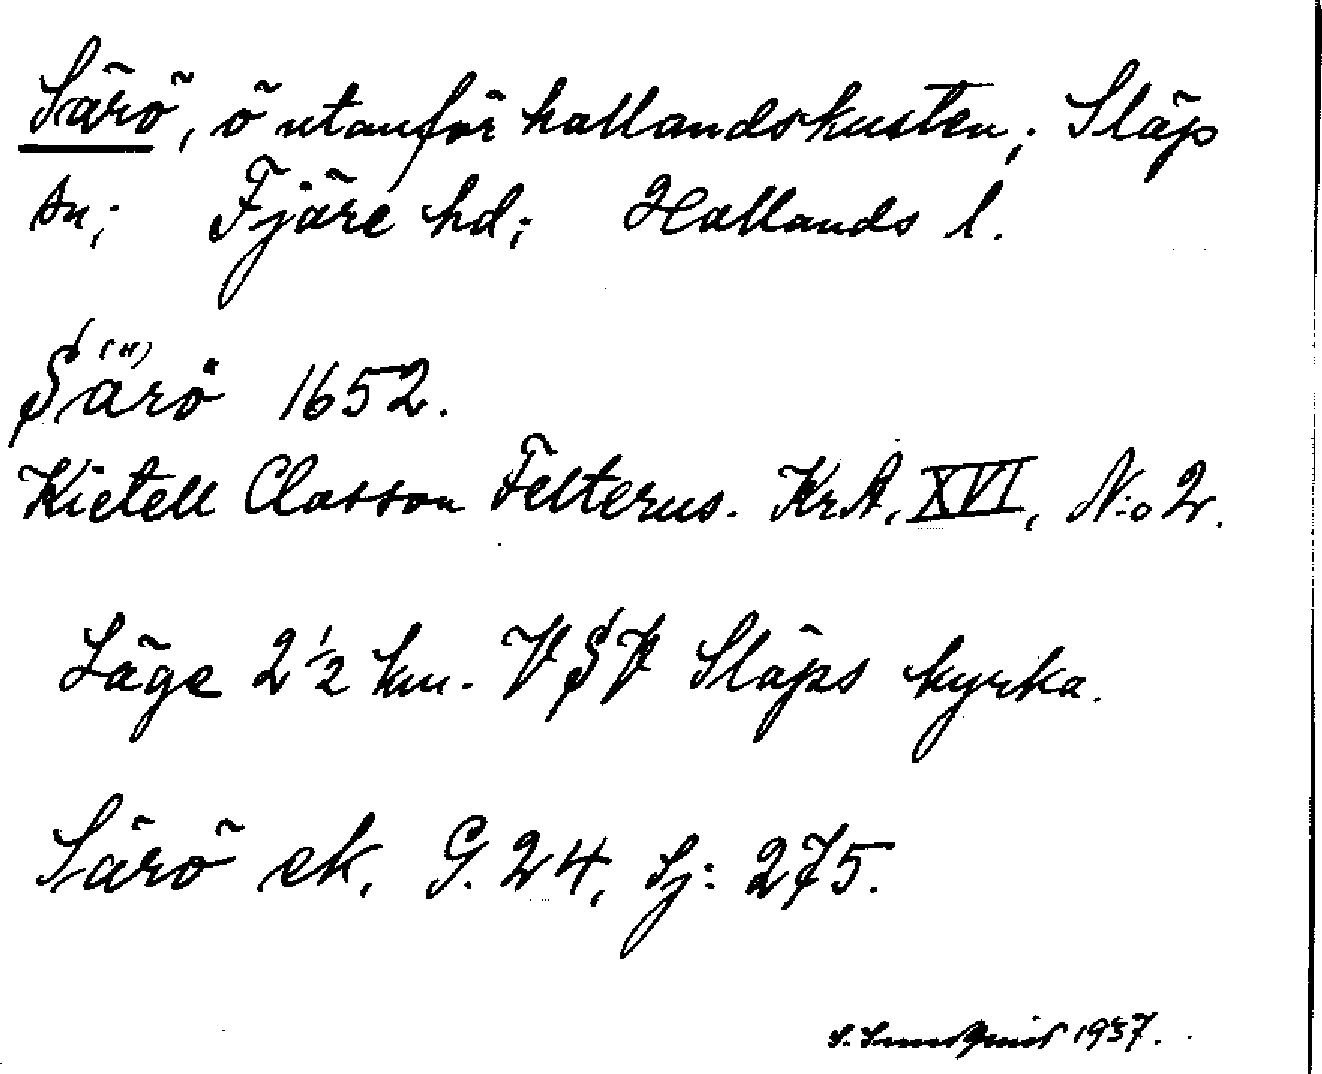 Särö, ö utanför hallandskusten; Släp
sn; Fjäre hd; Hallands l.
Särö 1652.
Kietell Classon Felterus. KrA, XVI, N:o 2.
Läge 2 1/2 km. VSV Släps kyrka.
Särö ek. G. 24, Sj: 275.
S. Sundqvist 1937.